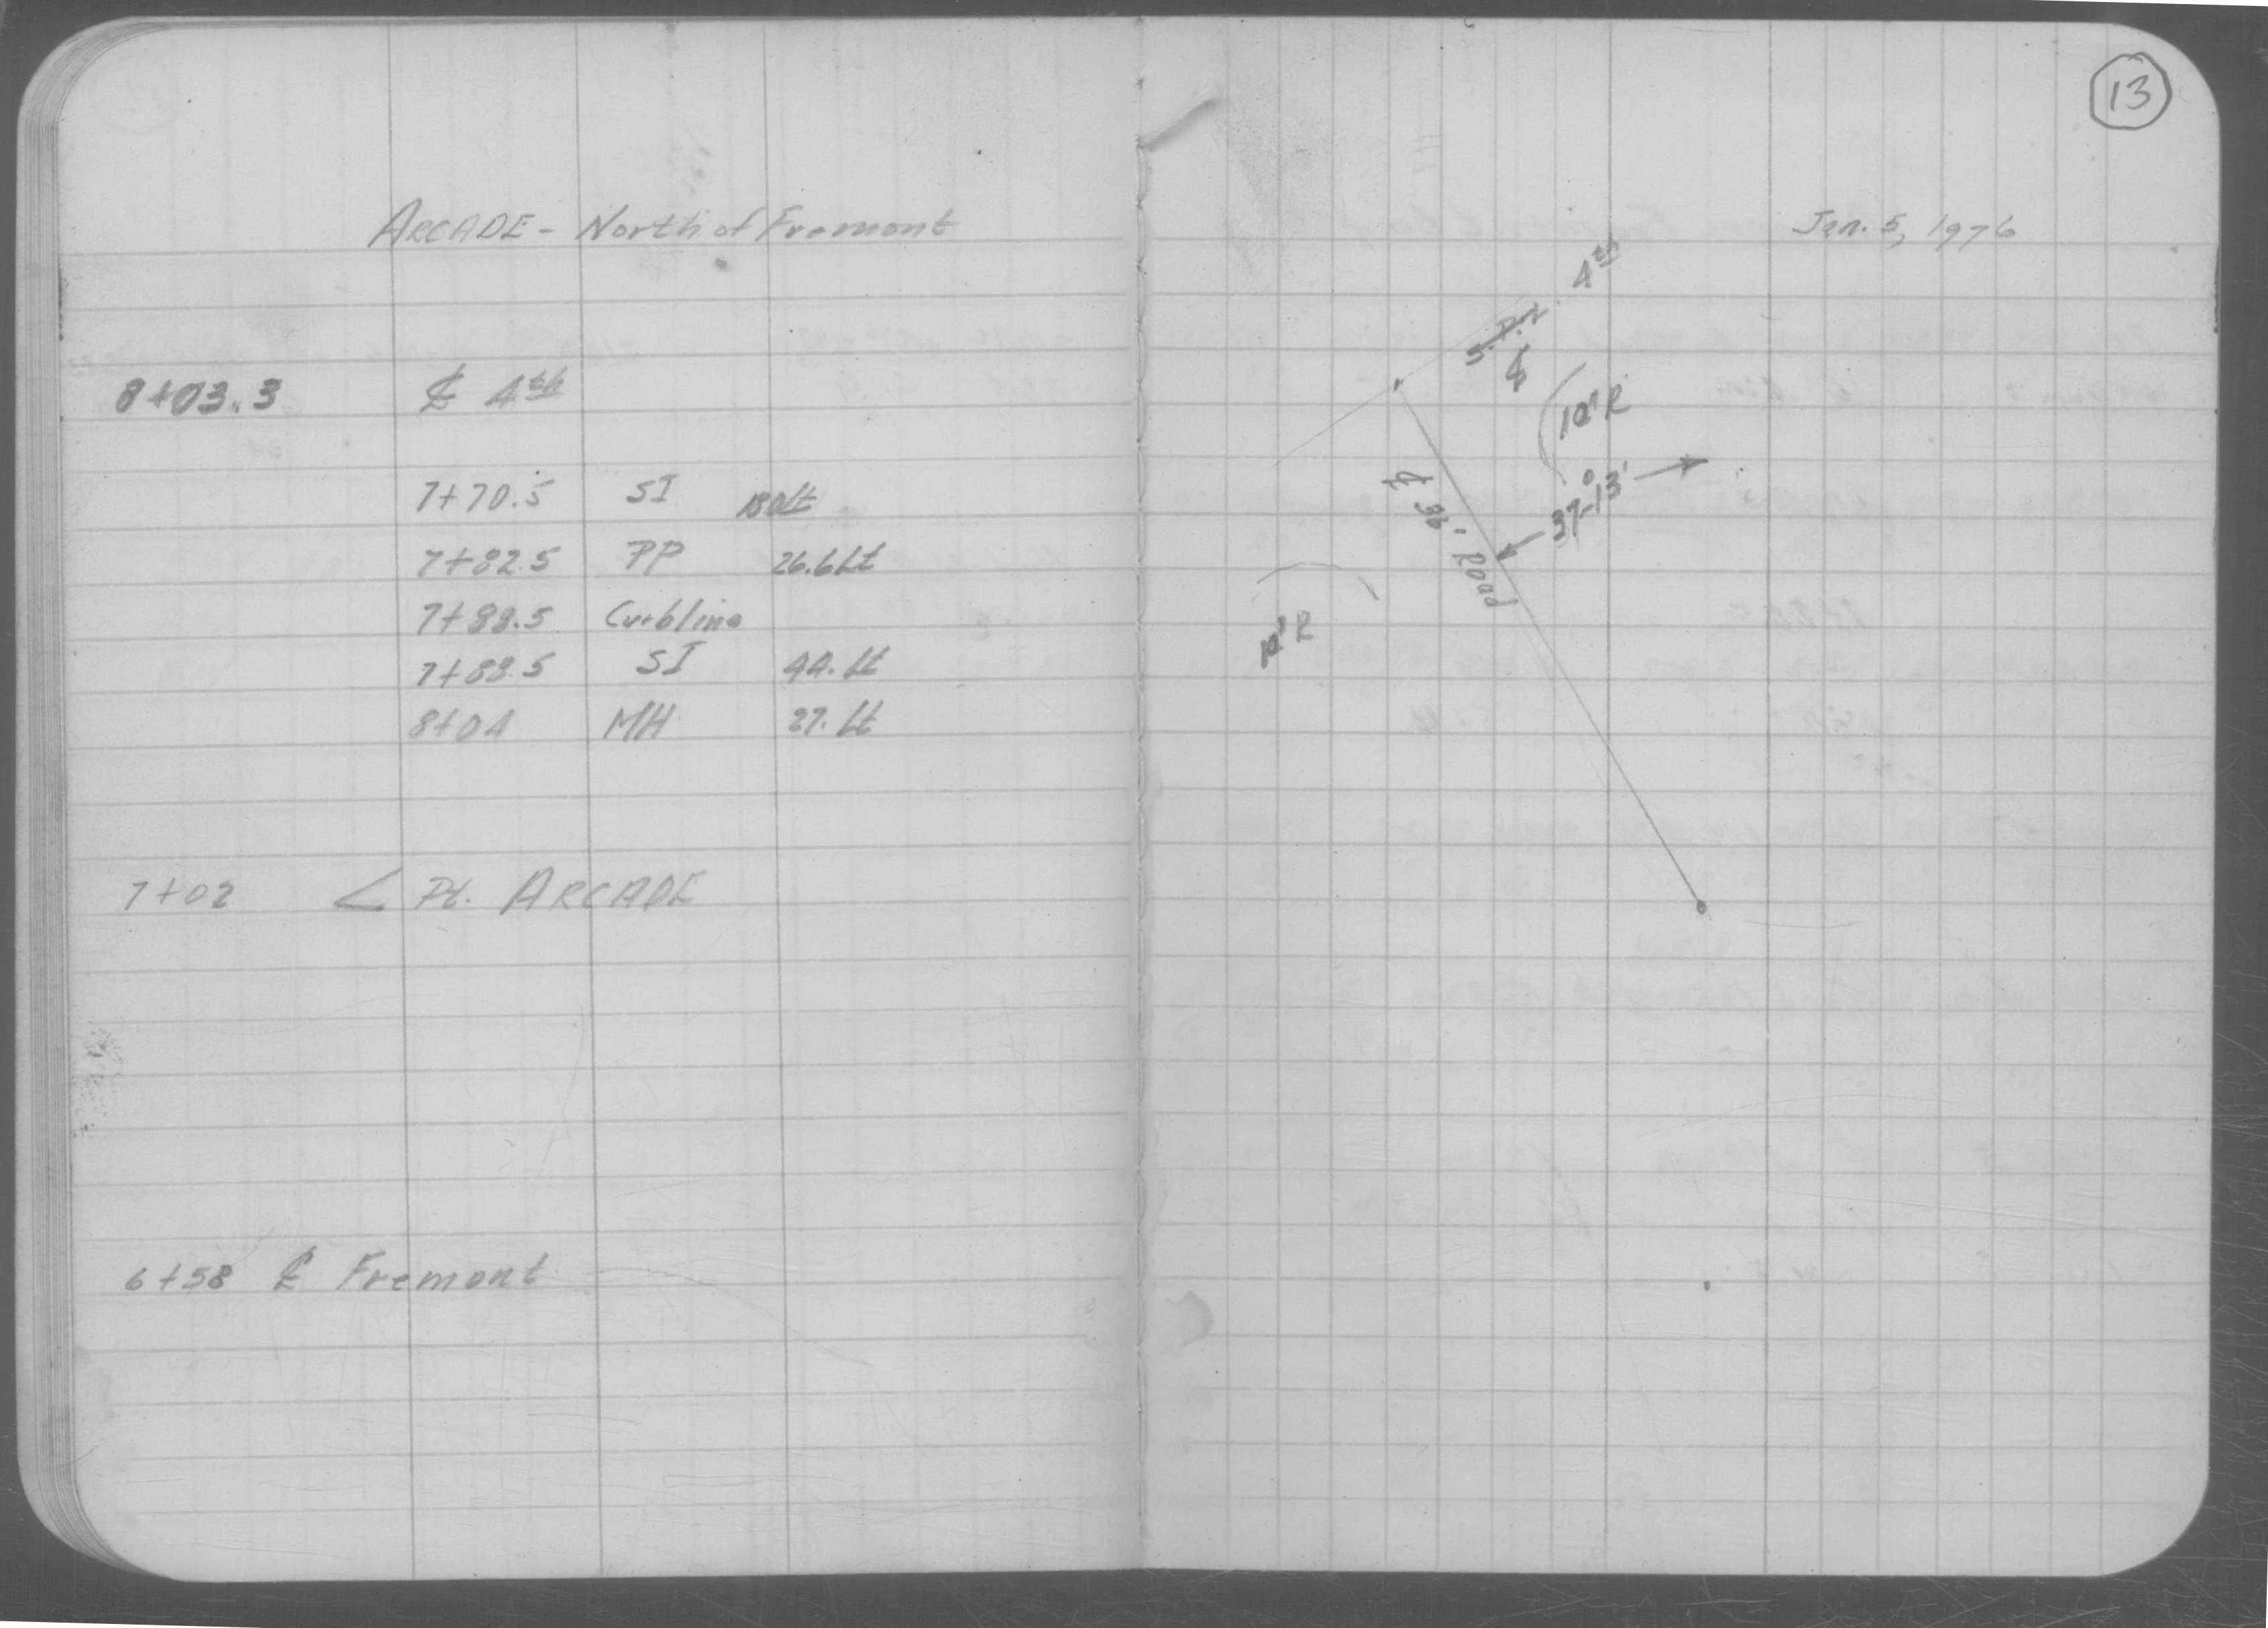 13
ARCADE - North of Fremont
Jan. 5, 1976
8+03.3 ℄ 4th
7+70.5 SI 18.0Lt
7+82.5 PP 26.6Lt
7+88.5 Curbline
7+88.5 SI 44. Lt
8+04 MH 27. Lt
7+02 < Pt. ARCADE
6+58 ℄ Fremont
4th
S. P.L.
℄
10' R
37°-13'
℄ 36' Road
10' R